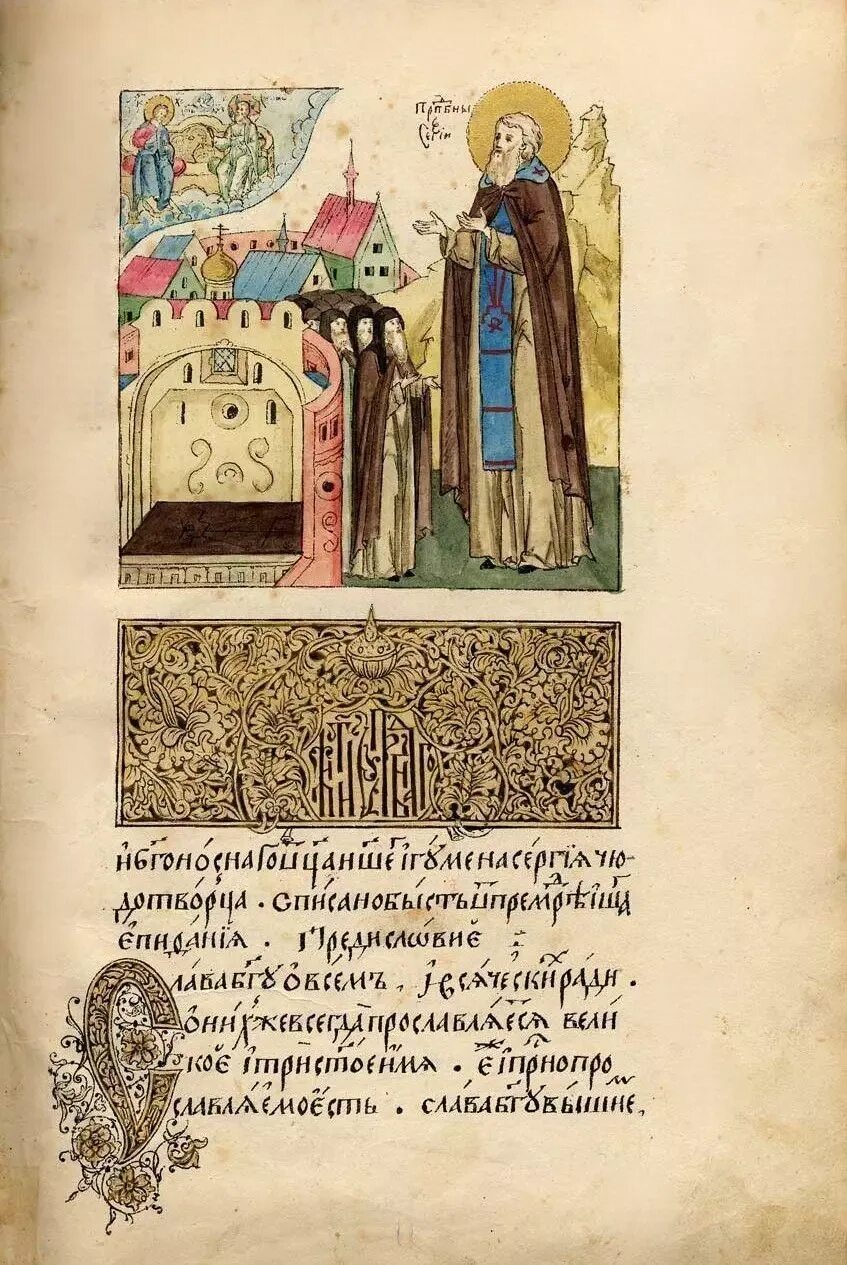 Прпⷣбны
Серⷢ҇іи
Житїе Прпⷣбнаго
и҆ бг҃оноснаго ѿц҃а нш҃е і҆гꙋмена сергїѧ чю
дотворца . списано бысть ѿ премⷣрѣ і҆ща
е҆пиѳанїѧ . Предисловие
лава бг҃ꙋ ѡ҆ всемъ , и҆ всѧчески рⷯади .
ѡ҆ ниⷯже всегда прославлѧе҆тсѧ вели
кое҆ і҆ трист҃ое и҆мѧ . е҆ⷤ і҆ прⷭ҇но про
славлѧ́емо е҆сть . слава бг҃ꙋ вышнеⷨ ,